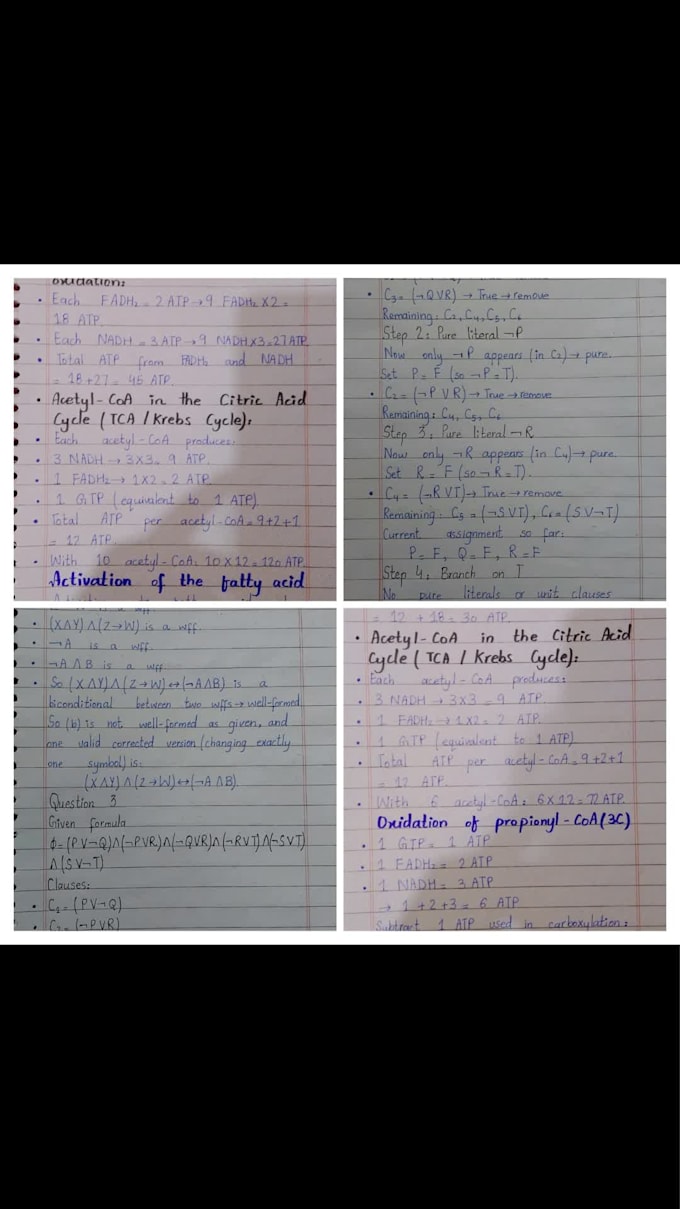 oxidation:
• Each FADH₂ = 2 ATP → 9 FADH₂ X 2 =
18 ATP
• Each NADH = 3 ATP → 9 NADH X 3 = 27 ATP.
• Total ATP from FADH₂ and NADH
= 18 + 27 = 45 ATP.
• Acetyl-CoA in the Citric Acid
Cycle (TCA / Krebs Cycle):
• Each acetyl-CoA produces:
• 3 NADH → 3X3 = 9 ATP.
• 1 FADH₂ → 1X2 = 2 ATP.
• 1 GTP (equivalent to 1 ATP)
• Total ATP per acetyl-CoA = 9+2+1
= 12 ATP.
• With 10 acetyl-CoA: 10 X 12 = 120 ATP.
Activation of the fatty acid
• C₃ = (¬Q V R) → True → remove
Remaining: C₂, C₄, C₅, C₆
Step 2: Pure literal ¬P
Now only ¬P appears (in C₂) → pure.
Set P = F (so ¬P = T).
• C₂ = (¬P V R) → True → remove
Remaining: C₄, C₅, C₆
Step 3: Pure literal ¬R
Now only ¬R appears (in C₄) → pure.
Set R = F (so ¬R = T).
• C₄ = (¬R V T) → True → remove
Remaining: C₅ = (¬S V T), C₆ = (S V ¬T)
Current assignment so far:
P = F, Q = F, R = F
Step 4: Branch on T
No pure literals or unit clauses
• (X∧Y)∧(Z→W) is a wff.
• ¬A is a wff.
• ¬A∧B is a wff
• So (X∧Y)∧(Z→W)↔(¬A∧B) is a
biconditional between two wffs → well-formed.
So (b) is not well-formed as given, and
one valid corrected version (changing exactly
one symbol) is:
(X∧Y)∧(Z→W)↔(¬A∧B).
Question 3
Given formula
ϕ = (P V ¬Q)∧(¬P V R)∧(¬Q V R)∧(¬R V T)∧(¬S V T)
∧(S V ¬T)
Clauses:
• C₁ = (P V ¬Q)
• C₂ = (¬P V R)
= 12 + 18 = 30 ATP.
• Acetyl-CoA in the Citric Acid
Cycle (TCA / Krebs Cycle):
• Each acetyl-CoA produces:
• 3 NADH → 3X3 = 9 ATP.
• 1 FADH₂ → 1X2 = 2 ATP.
• 1 GTP (equivalent to 1 ATP)
• Total ATP per acetyl-CoA = 9+2+1
= 12 ATP.
• With 6 acetyl-CoA: 6 X 12 = 72 ATP.
Oxidation of propionyl-CoA (3C)
• 1 GTP = 1 ATP
• 1 FADH₂ = 2 ATP
• 1 NADH = 3 ATP
→ 1 + 2 + 3 = 6 ATP
Subtract 1 ATP used in carboxylation: